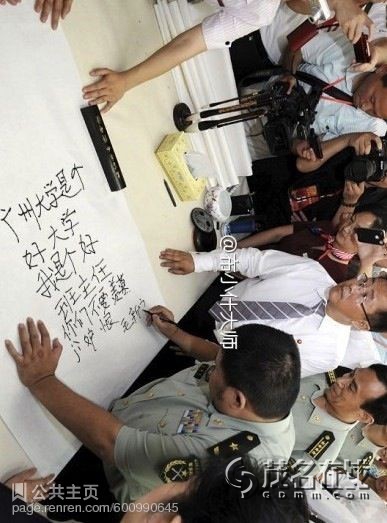 广州大学是个
好大学
我是个好
班主任
你们不要羡慕
妒恨
毛新宇
茂名在线
GDMM.com
公共主页
page.renren.com/600990645